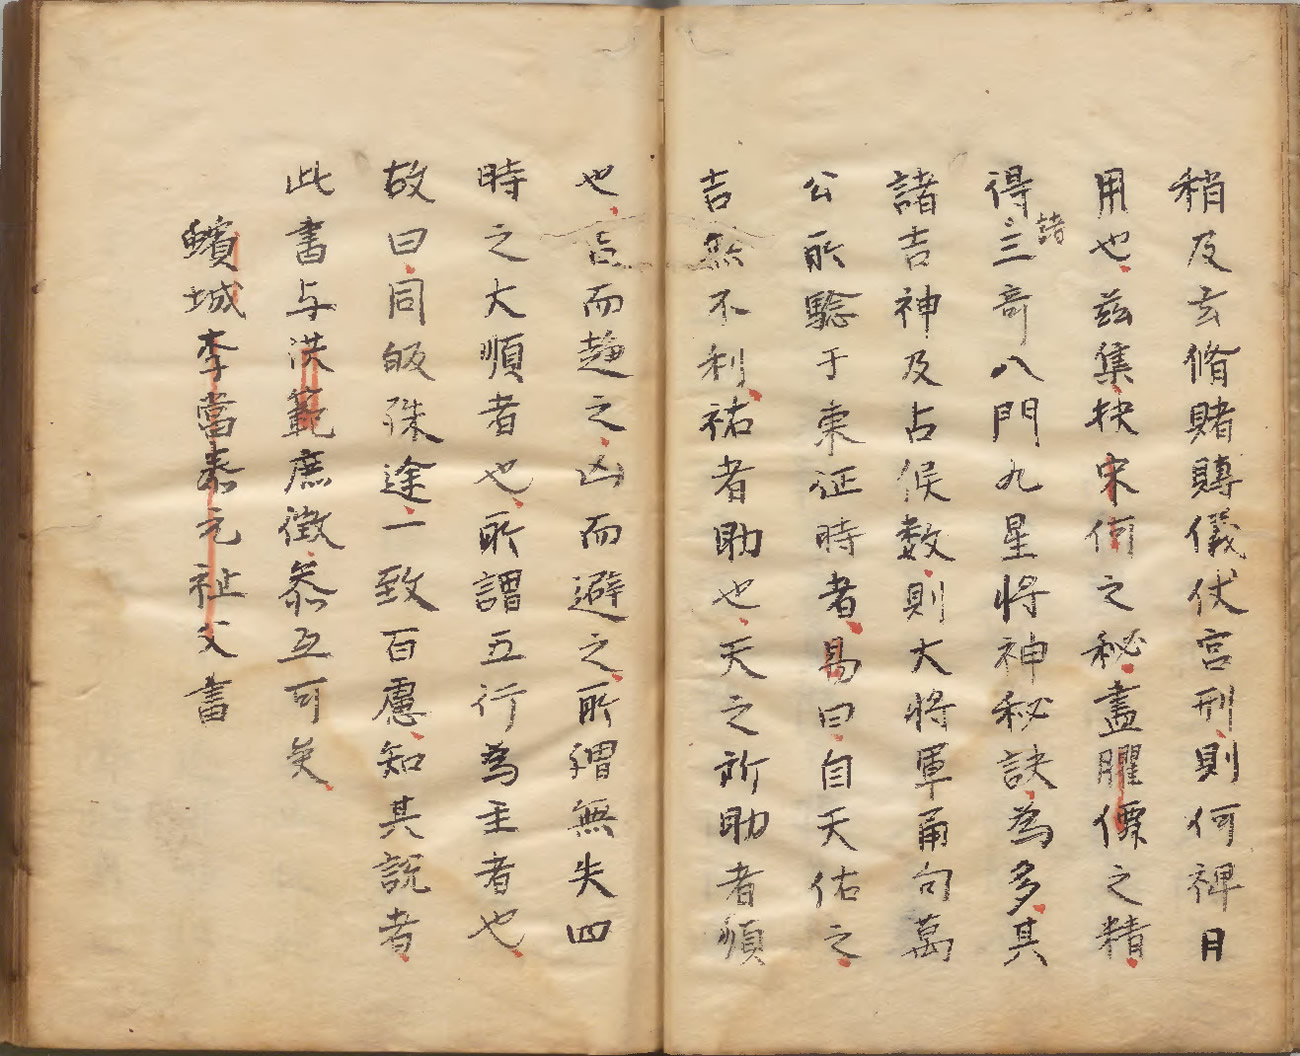 稍及玄脩賭賻儀伏宮刑則何裨日
用也茲集抉宋何之秘盡臞僊之精
得諸三奇八門九星將神秘訣為多其
諸吉神及占候数則大將軍甬句萬
公所驗于東征時者易曰自天佑之
吉無不利祐者助也天之所助者順
也吉而趨之凶而避之所謂無失四
時之大順者也所謂五行為主者也
故曰同皈殊途一致百慮知其説者
此書与洪範庶徵叅互可矣
蠙城李當泰元祉父書